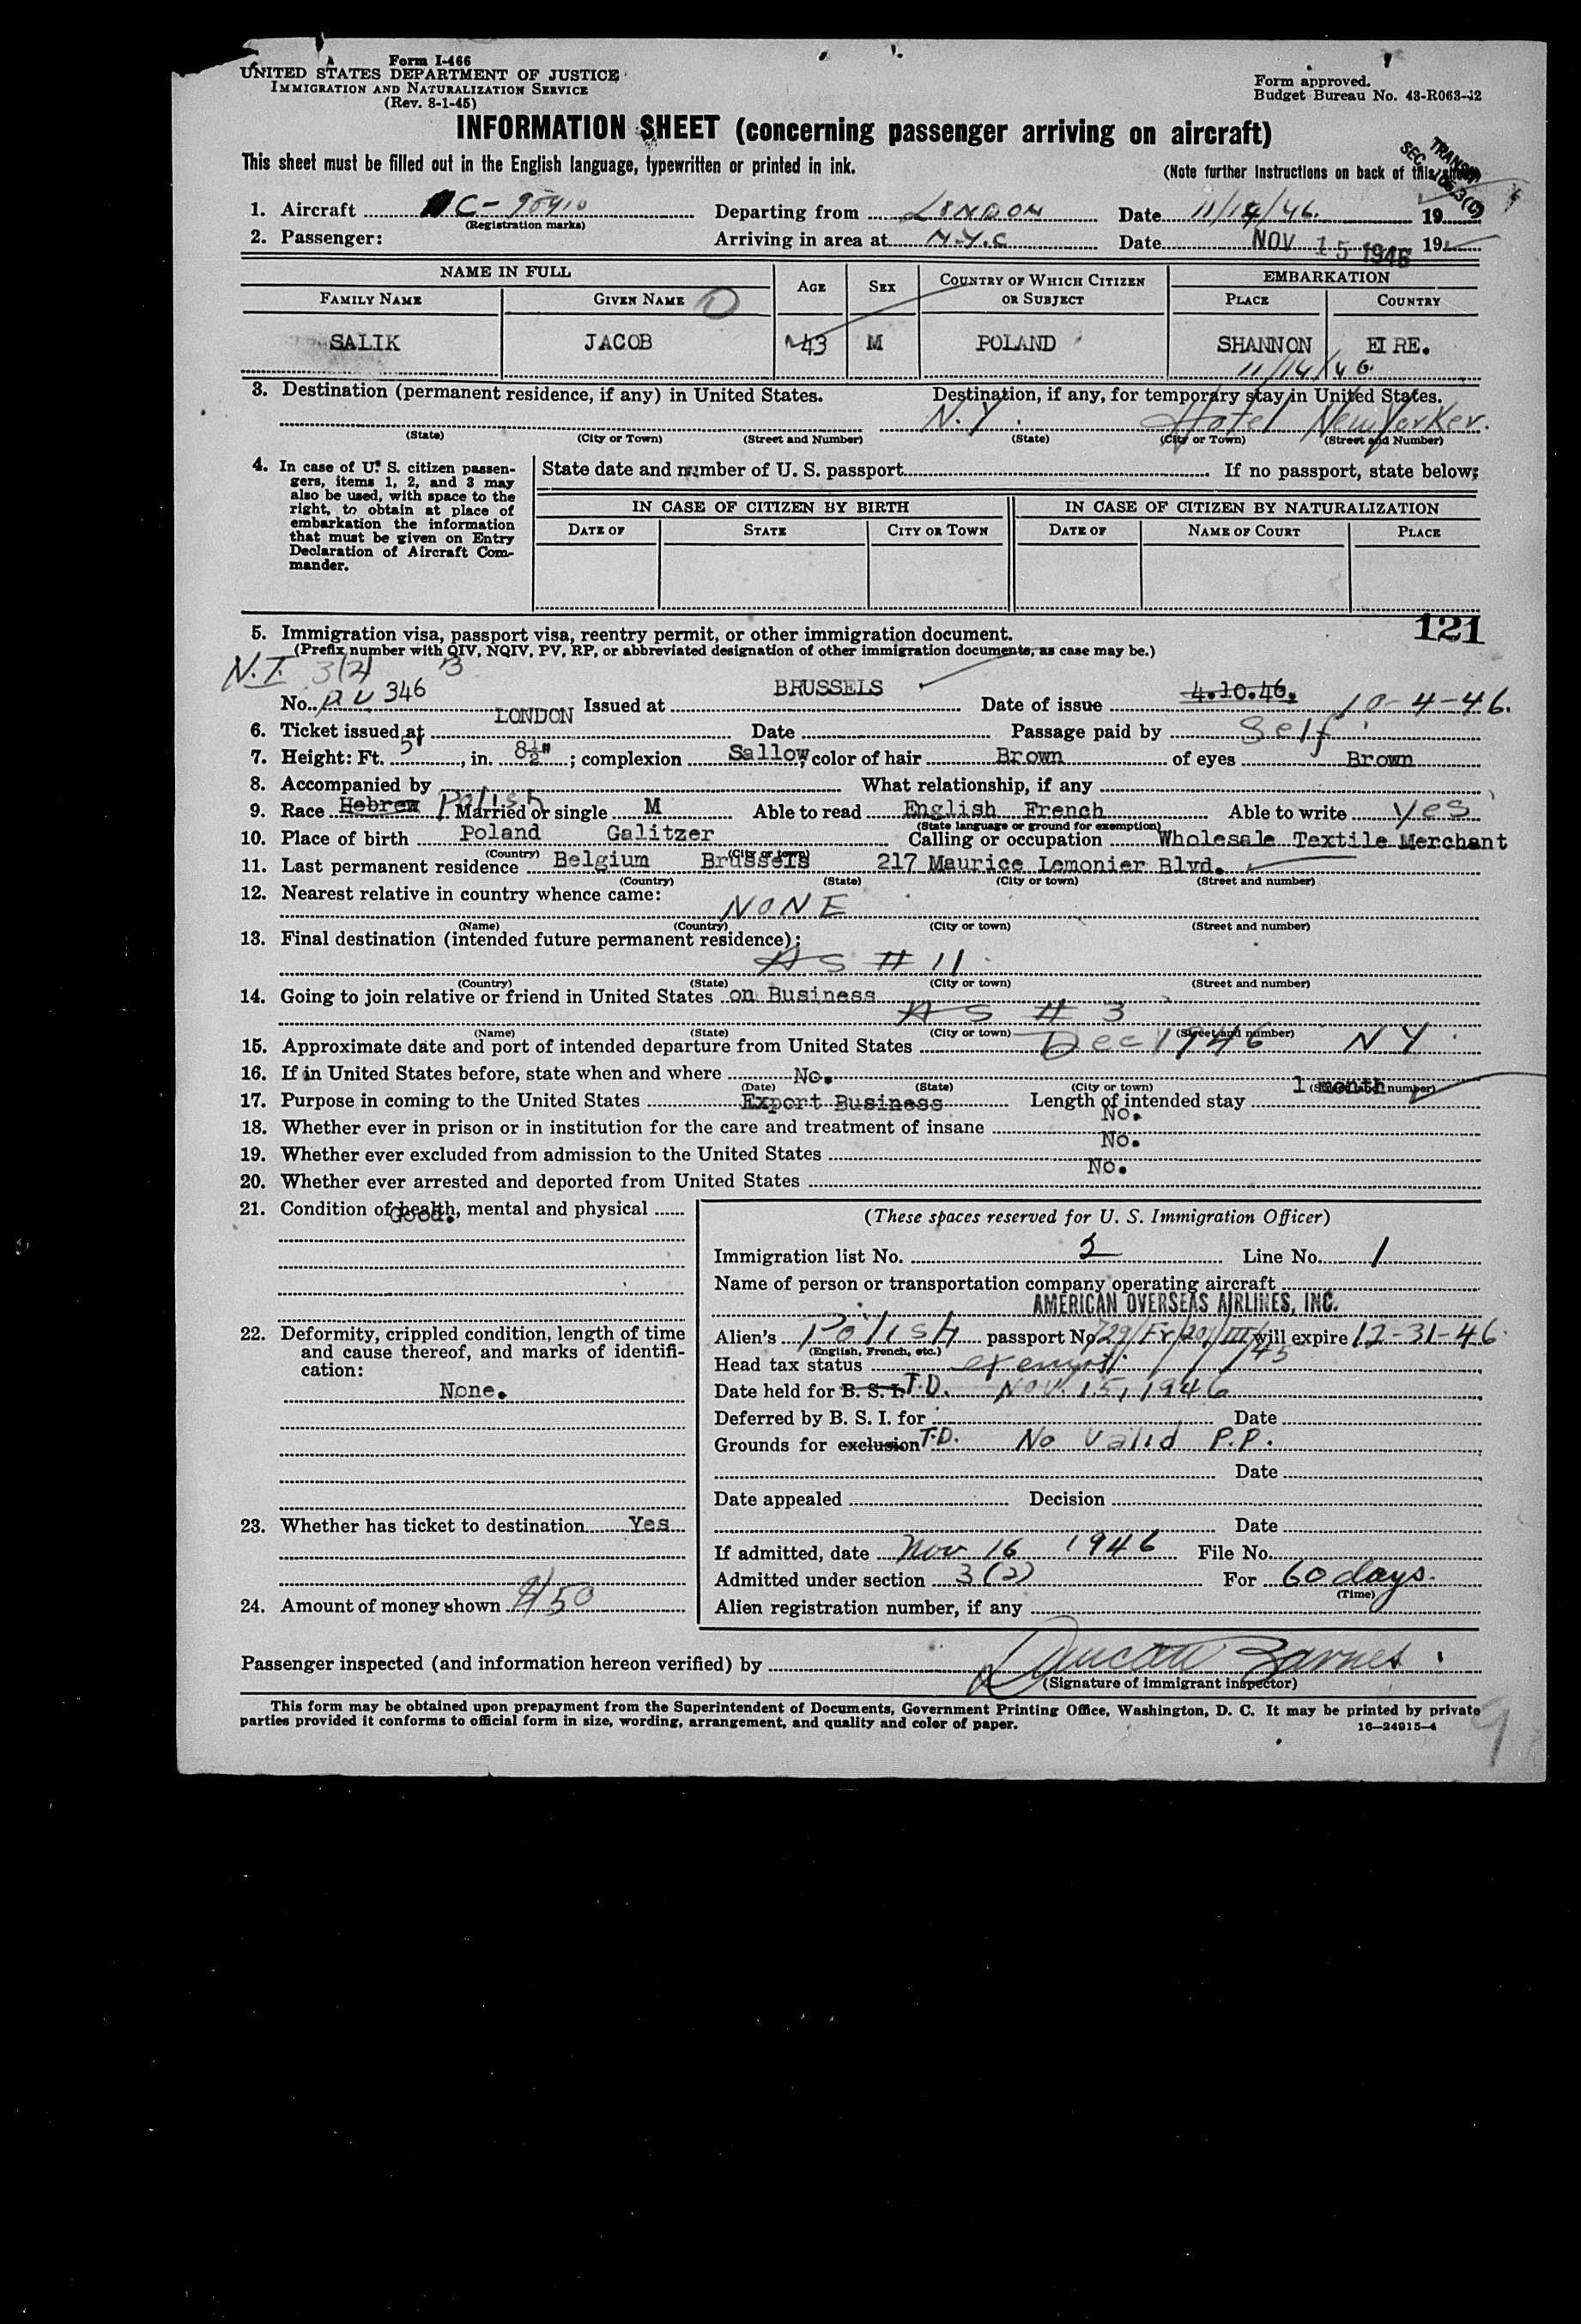 Form I-466
UNITED STATES DEPARTMENT OF JUSTICE
IMMIGRATION AND NATURALIZATION SERVICE
(Rev. 8-1-45)
Form approved.
Budget Bureau No. 43-R063-42
INFORMATION SHEET (concerning passenger arriving on aircraft)
This sheet must be filled out in the English language, typewritten or printed in ink.
(Note further instructions on back of this sheet)
TRANSIT
SEC.
1. Aircraft C- Departing from LONDON Date 11/14/46. 19
(Registration marks)
2. Passenger: Arriving in area at N.Y.C Date NOV 15 1946 19
NAME IN FULL AGE SEX COUNTRY OF WHICH CITIZEN OR SUBJECT EMBARKATION
FAMILY NAME GIVEN NAME PLACE COUNTRY
SALIK JACOB 43 M POLAND SHANNON EIRE.
11/14/46.
3. Destination (permanent residence, if any) in United States. Destination, if any, for temporary stay in United States.
N.Y. Hotel New Yorker.
(State) (City or Town) (Street and Number) (State) (City or Town) (Street and Number)
4. In case of U. S. citizen passengers, items 1, 2, and 3 may also be used, with space to the right, to obtain at place of embarkation the information that must be given on Entry Declaration of Aircraft Commander.
State date and number of U. S. passport If no passport, state below:
IN CASE OF CITIZEN BY BIRTH IN CASE OF CITIZEN BY NATURALIZATION
DATE OF STATE CITY OR TOWN DATE OF NAME OF COURT PLACE
121
5. Immigration visa, passport visa, reentry permit, or other immigration document.
(Prefix number with QIV, NQIV, PV, RP, or abbreviated designation of other immigration documents, as case may be.)
N.I. 3(2)
No. PV 346 Issued at BRUSSELS Date of issue 4.10.46. 10-4-46.
6. Ticket issued at LONDON Date Passage paid by Self
7. Height: Ft. 5', in. 8½"; complexion Sallow, color of hair Brown of eyes Brown
8. Accompanied by What relationship, if any
9. Race Hebrew Polish Married or single M Able to read English French Able to write Yes
(State language or ground for exemption)
10. Place of birth Poland Galitzer Calling or occupation Wholesale Textile Merchant
(Country) (City or town)
11. Last permanent residence Belgium Brussels 217 Maurice Lemonier Blvd.
(Country) (State) (City or town) (Street and number)
12. Nearest relative in country whence came:
NONE
(Name) (Country) (City or town) (Street and number)
13. Final destination (intended future permanent residence):
AS # 11
(Country) (State) (City or town) (Street and number)
14. Going to join relative or friend in United States on Business
AS # 3
(Name) (State) (City or town) (Street and number)
15. Approximate date and port of intended departure from United States Dec 1946 NY
16. If in United States before, state when and where No.
(Date) (State) (City or town) (Street and number)
17. Purpose in coming to the United States Export Business Length of intended stay 1 month
18. Whether ever in prison or in institution for the care and treatment of insane No.
19. Whether ever excluded from admission to the United States No.
20. Whether ever arrested and deported from United States No.
21. Condition of health, mental and physical
Good.
22. Deformity, crippled condition, length of time and cause thereof, and marks of identification:
None.
23. Whether has ticket to destination Yes
24. Amount of money shown $150
(These spaces reserved for U. S. Immigration Officer)
Immigration list No. 2 Line No. 1
Name of person or transportation company operating aircraft
AMERICAN OVERSEAS AIRLINES, INC.
Alien's Polish passport No. 729/Fr/201/III/45 will expire 12-31-46
(English, French, etc.)
Head tax status exempt
Date held for B. S. I. T.D. Nov. 15, 1946
Deferred by B. S. I. for Date
Grounds for exclusion T.D. No Valid P.P.
Date
Date appealed Decision
Date
If admitted, date Nov 16 1946 File No.
Admitted under section 3(2) For 60 days.
(Time)
Alien registration number, if any
Passenger inspected (and information hereon verified) by Duncan Barnes
(Signature of immigrant inspector)
This form may be obtained upon prepayment from the Superintendent of Documents, Government Printing Office, Washington, D. C. It may be printed by private
parties provided it conforms to official form in size, wording, arrangement, and quality and color of paper.
16—24915-4
9